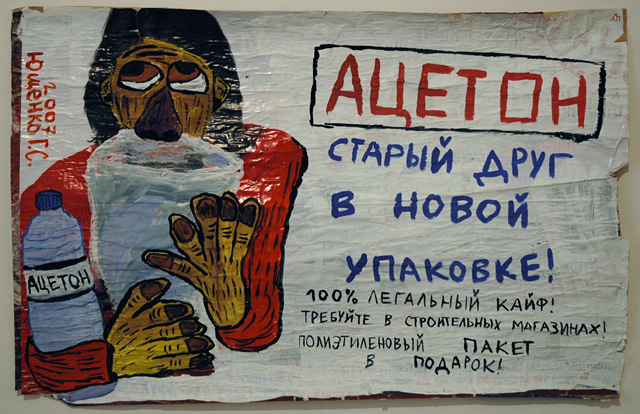 Ющенко Г.С.
2007
АЦЕТОН
АЦЕТОН
СТАРЫЙ ДРУГ
В НОВОЙ
УПАКОВКЕ!
100% ЛЕГАЛЬНЫЙ КАЙФ!
ТРЕБУЙТЕ В СТРОИТЕЛЬНЫХ МАГАЗИНАХ!
ПОЛИЭТИЛЕНОВЫЙ ПАКЕТ
В ПОДАРОК!